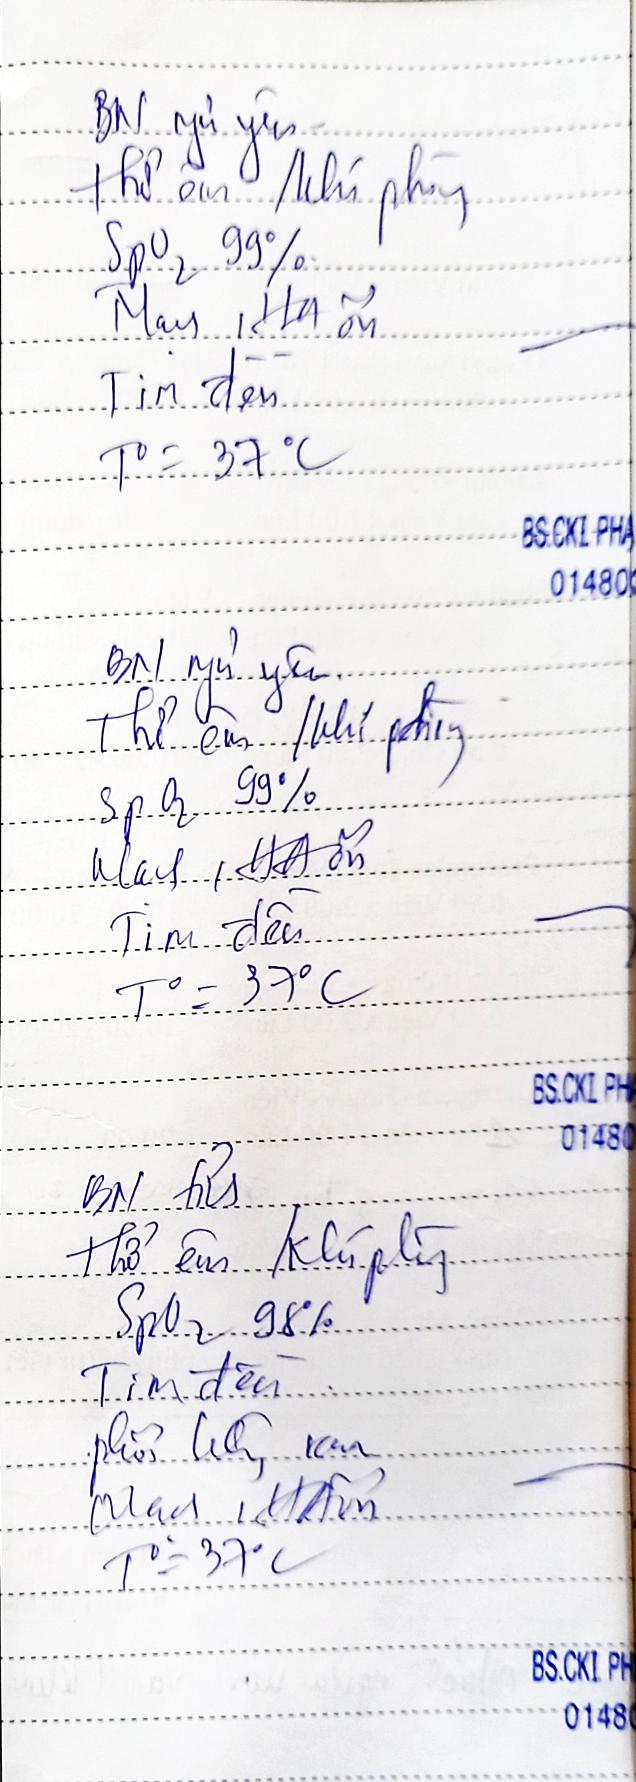 BN ngủ yên
Thở êm /khí phòng
SpO2 99%
Mạch, HA ổn
Tim đều
T° = 37°C
BS.CKI PHẠ
01480
BN ngủ yên.
Thở êm /khí phòng
SpO2 99%
Mạch, HA ổn
Tim đều
T° = 37°C
BS.CKI PH
01480
BN tỉnh
Thở êm /khí phòng
SpO2 98%
Tim đều
phổi không ran
Mạch, HA ổn
T° = 37°C
BS.CKI PH
0148